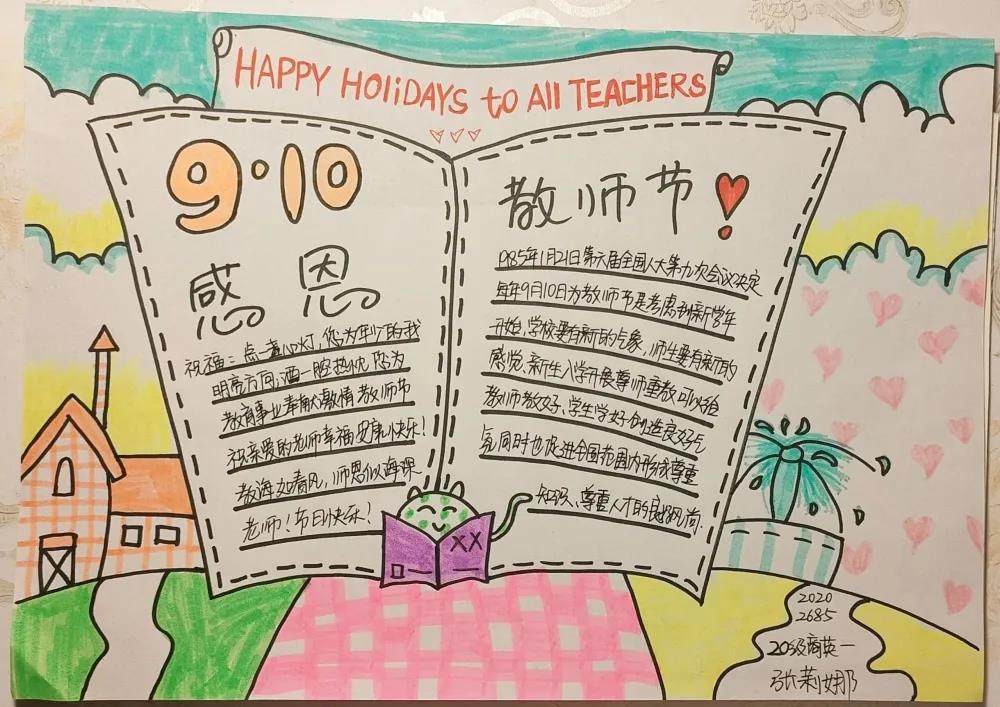 HAPPY HOLiDAYS to All TEACHERS
9·10
感恩
祝福：点一盏心灯，您为年少的我
明亮方向；洒一腔热忱，您为
教育事业奉献激情 教师节
祝亲爱的老师幸福安康快乐！
教诲如春风，师恩似海深
老师！节日快乐！
教师节！
1985年1月21日第六届全国人大第九次会议决定
每年9月10日为教师节是考虑到新学年
开始，学校要有新的气象，师生要有新的
感觉，新生入学开展尊师重教可以给
教师教好，学生学好创造良好气
氛同时也促进全国范围内形成尊重
知识、尊重人才的良好风尚.
XX
2020
2685
20级商英一
张莉娜